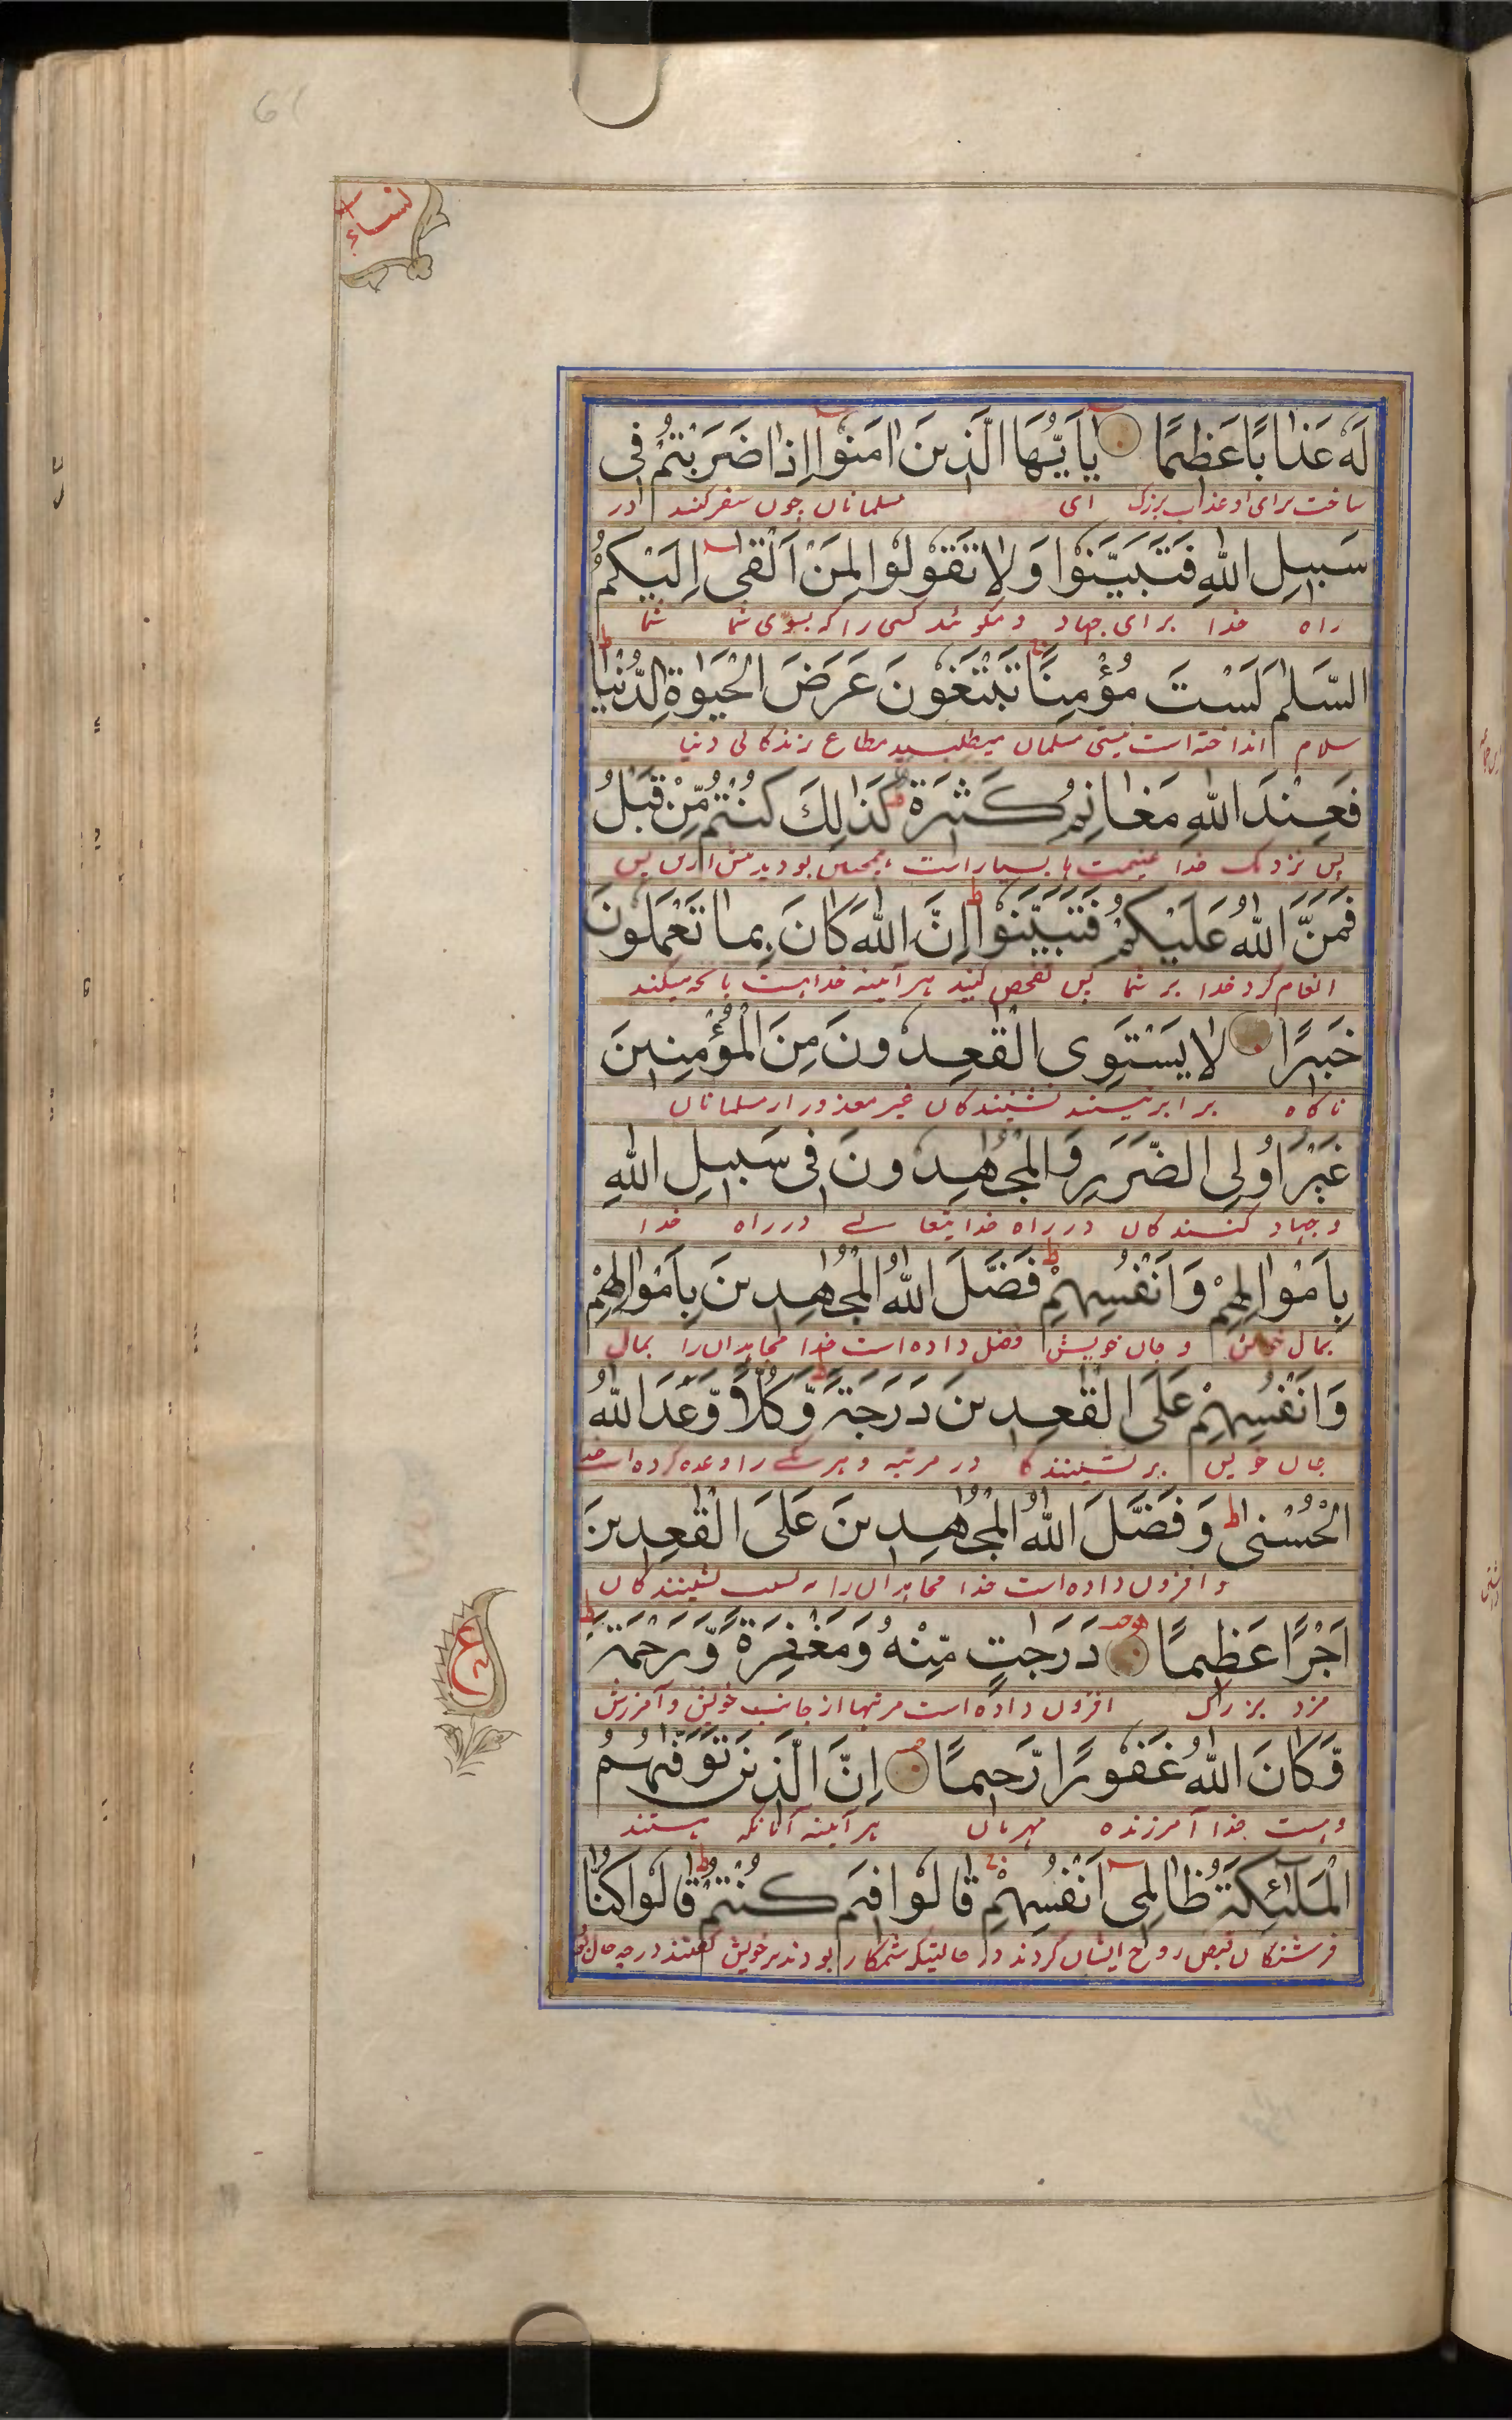 61
نساء
لَهٗ عَذَابًا عَظِيمًا يٰاَيُّهَا الَّذِينَ اٰمَنُوا اِذَا ضَرَبْتُمْ فِى
ساخت برای او عذاب بزرگ ای مسلمانان چون سفر کنند در
سَبِيلِ اللهِ فَتَبَيَّنُوا وَلَا تَقُولُوا لِمَنْ اَلْقٰى اِلَيْكُمُ
راه خدا برای جهاد و مگوئید کسی را که بسوی شما شما
السَّلٰمَ لَسْتَ مُؤْمِنًا تَبْتَغُونَ عَرَضَ الْحَيٰوةِ الدُّنْيَا
سلام انداخته است نیستی مسلمان میطلبید مطاع زندکانی دنیا
فَعِنْدَ اللهِ مَغَانِمُ كَثِيرَةٌ كَذٰلِكَ كُنْتُمْ مِّنْ قَبْلُ
پس نزدیک خدا غنیمت ها بسیار است همچنین بودید پیش ازین پس
فَمَنَّ اللهُ عَلَيْكُمْ فَتَبَيَّنُوا اِنَّ اللهَ كَانَ بِمَا تَعْمَلُونَ
انعام کرد خدا بر شما پس تفحص کنید هر آئینه خدا هست بانچه میکنند
خَبِيرًا لَا يَسْتَوِى الْقٰعِدُونَ مِنَ الْمُؤْمِنِينَ
اکاه برابر نیستند نشینندکان غیر معذور از مسلمانان
غَيْرُ اُولِى الضَّرَرِ وَالْمُجٰهِدُونَ فِى سَبِيلِ اللهِ
و جهاد کنندکان در راه خدایتعالے در راه خدا
بِاَمْوَالِهِمْ وَاَنْفُسِهِمْ فَضَّلَ اللهُ الْمُجٰهِدِينَ بِاَمْوَالِهِمْ
بمال خویش و جان خویش فضل داده است خدا مجاهدان را بمال
وَاَنْفُسِهِمْ عَلَى الْقٰعِدِينَ دَرَجَةً وَّكُلًّا وَّعَدَ اللهُ
جان خویش بر نشینندکا در مرتبه و هر یکے را وعده کرده است خدا
الْحُسْنٰى وَفَضَّلَ اللهُ الْمُجٰهِدِينَ عَلَى الْقٰعِدِينَ
و افزون داده است خدا مجاهدان را نشینندکان
اَجْرًا عَظِيمًا دَرَجٰتٍ مِّنْهُ وَمَغْفِرَةً وَّرَحْمَةً
ع
مزد بزرگ افزون داده است مرتبها از جانب خویش و آمرزش
وَّكَانَ اللهُ غَفُورًا رَّحِيمًا اِنَّ الَّذِينَ تَوَفّٰهُمُ
وهست خدا آمرزنده مهربان هر آئینه آنانکه هستند
الْمَلٰئِكَةُ ظَالِمِى اَنْفُسِهِمْ قَالُوا فِيمَ كُنْتُمْ قَالُوا كُنَّا
فرشتکان قبض روح ایشان کردند در حالتیکه ستمکار بودند بر خویش گفتند در چه حال